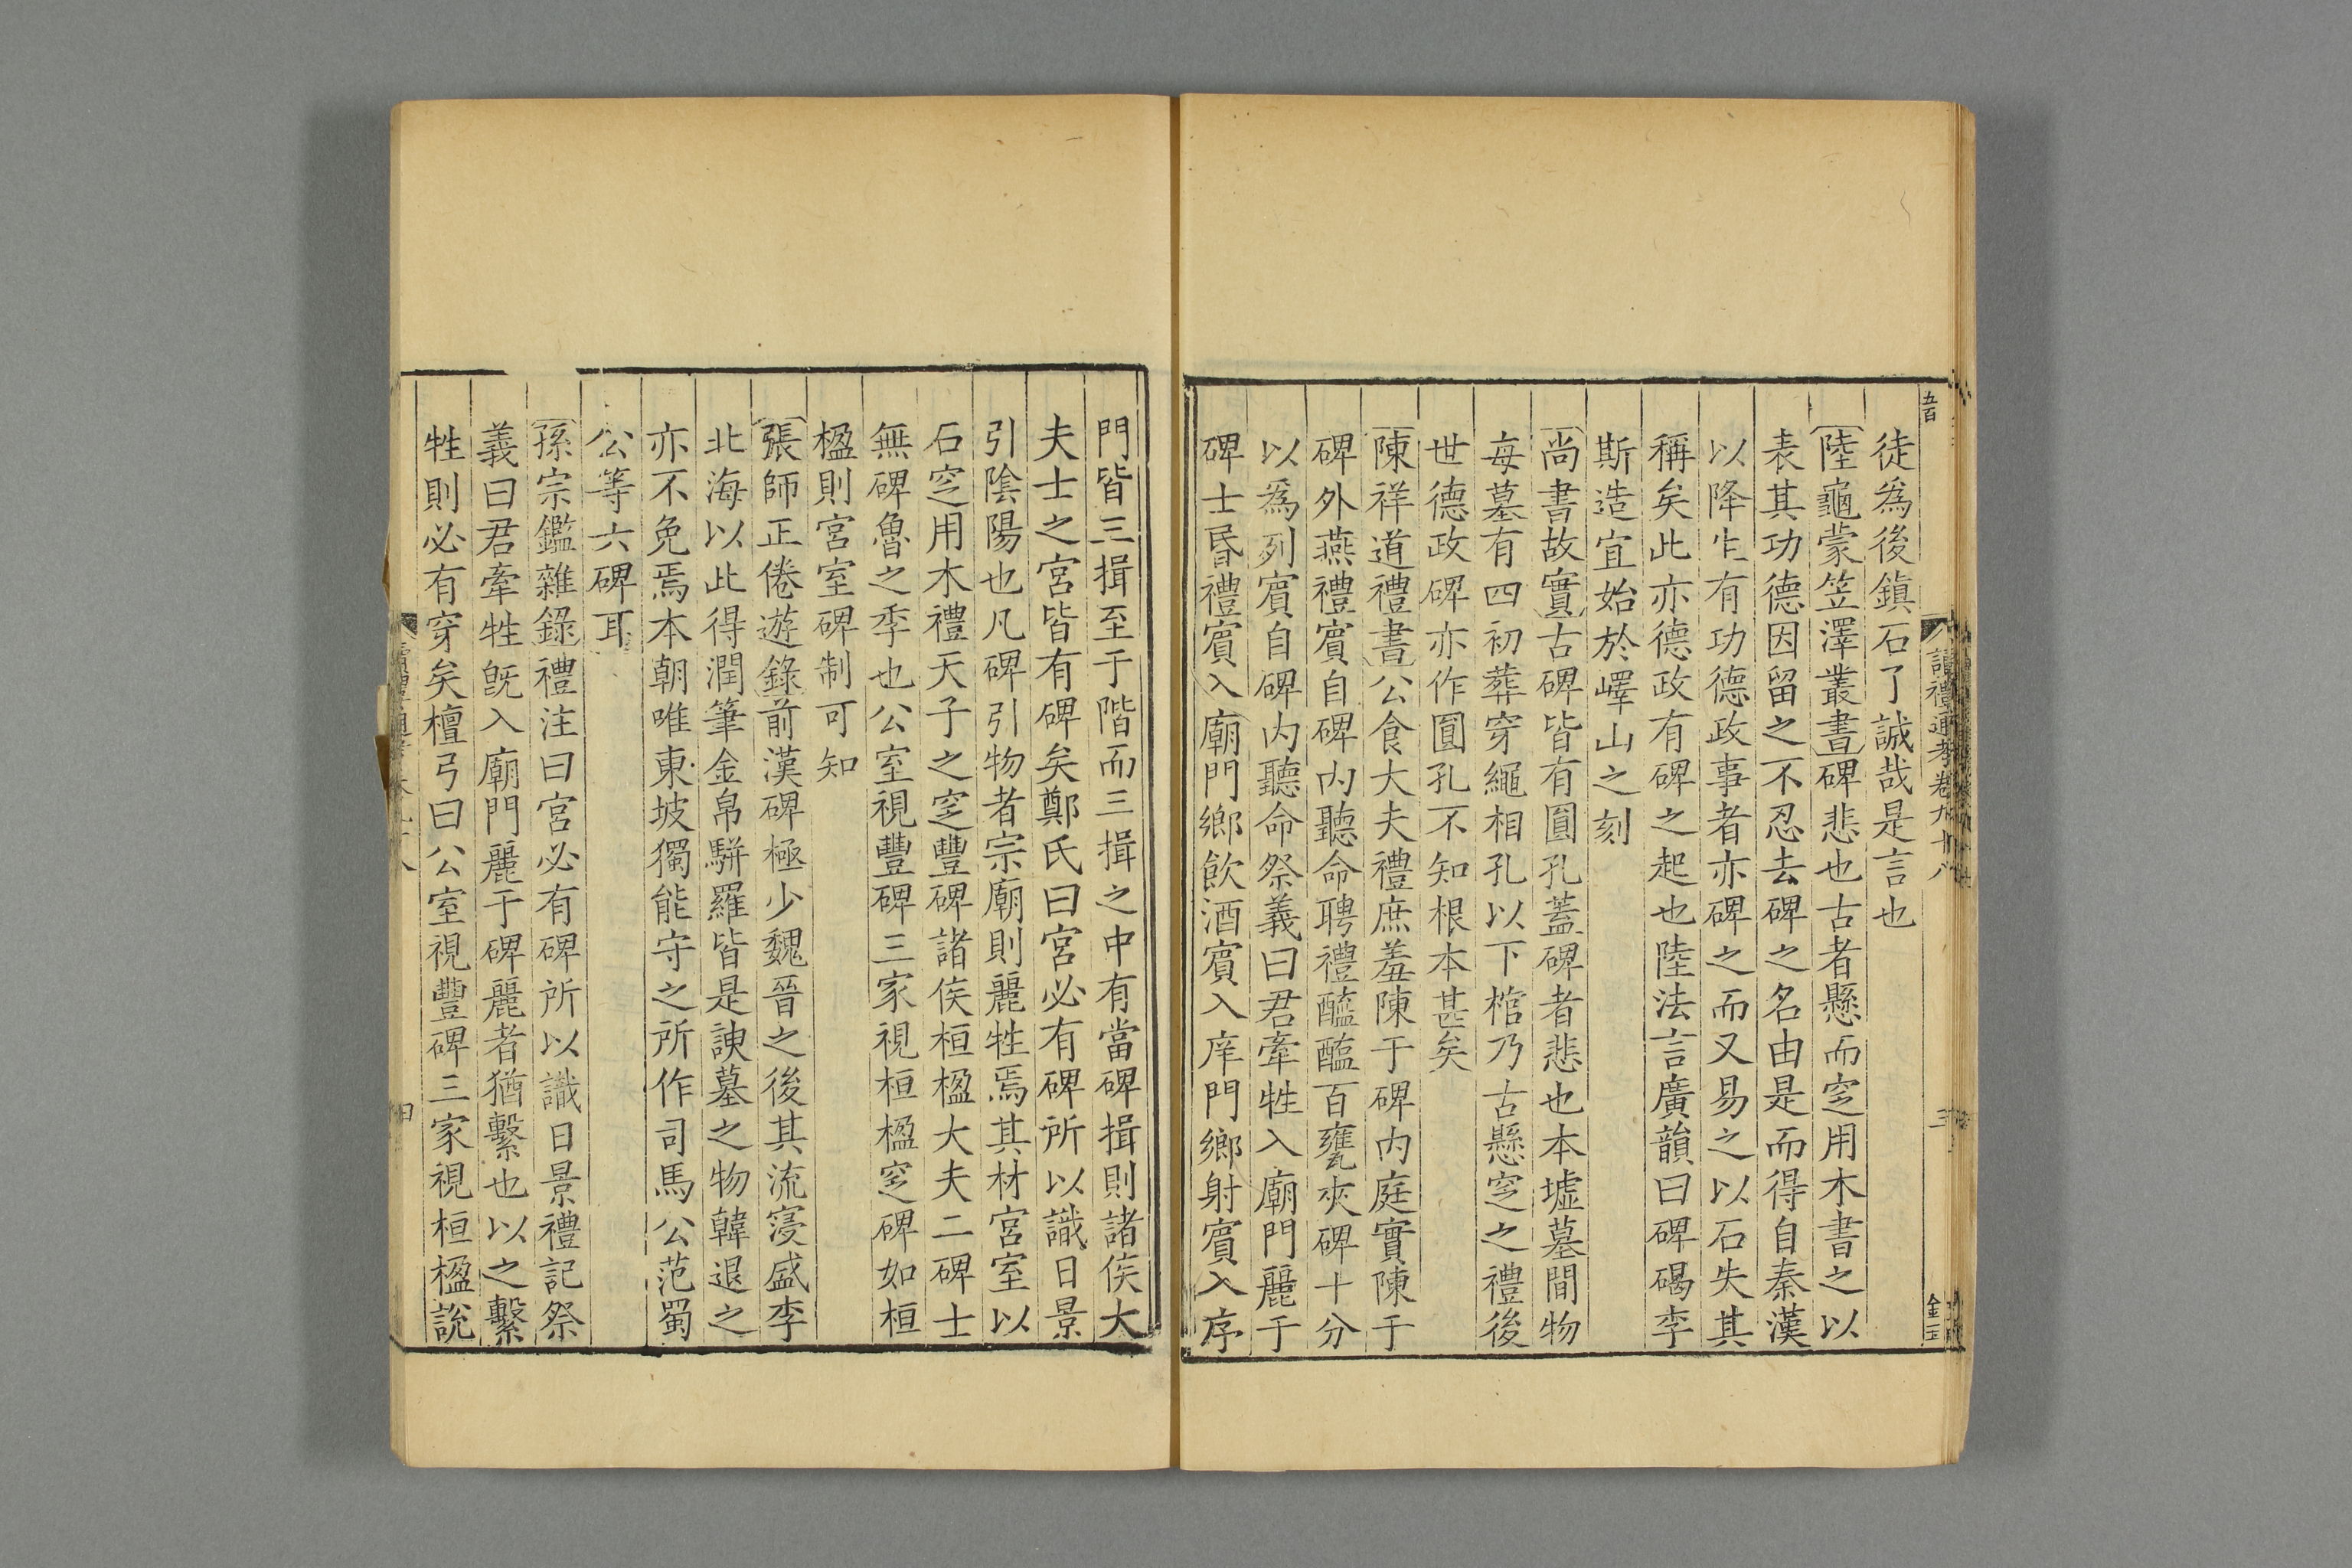 讀禮通考卷九十八
三
徒爲後鎭石了誠哉是言也
陸龜蒙笠澤叢書碑悲也古者懸而窆用木書之以
表其功德因留之不忍去碑之名由是而得自秦漢
以降生有功德政事者亦碑之而又易之以石失其
稱矣此亦德政有碑之起也陸法言廣韻曰碑碣李
斯造宜始於嶧山之刻
尚書故實古碑皆有圓孔蓋碑者悲也本墟墓間物
每墓有四初葬穿繩相孔以下棺乃古懸窆之禮後
世德政碑亦作圓孔不知根本甚矣
陳祥道禮書公食大夫禮庶羞陳于碑內庭實陳于
碑外燕禮賓自碑內聽命聘禮醯醢百甕夾碑十分
以爲列賓自碑内聽命祭義曰君牽牲入廟門麗于
碑士昬禮賓入廟門鄉飲酒賓入庠門鄉射賓入序
門皆三揖至于階而三揖之中有當碑揖則諸侯大
夫士之宮皆有碑矣鄭氏曰宮必有碑所以識日景
引陰陽也凡碑引物者宗廟則麗牲焉其材宮室以
石窆用木禮天子之窆豐碑諸侯桓楹大夫二碑士
無碑魯之季也公室視豐碑三家視桓楹窆碑如桓
楹則宮室碑制可知
張師正倦遊錄前漢碑極少魏晉之後其流寖盛李
北海以此得潤筆金帛駢羅皆是諛墓之物韓退之
亦不免焉本朝唯東坡獨能守之所作司馬公范蜀
公等六碑耳
孫宗鑑雜錄禮注曰宮必有碑所以識日景禮記祭
義曰君牽牲旣入廟門麗于碑麗者猶繫也以之繫
牲則必有穿矣檀弓曰公室視豐碑三家視桓楹說